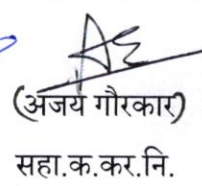 (अजय गौरकार)
सहा.क.कर.नि.